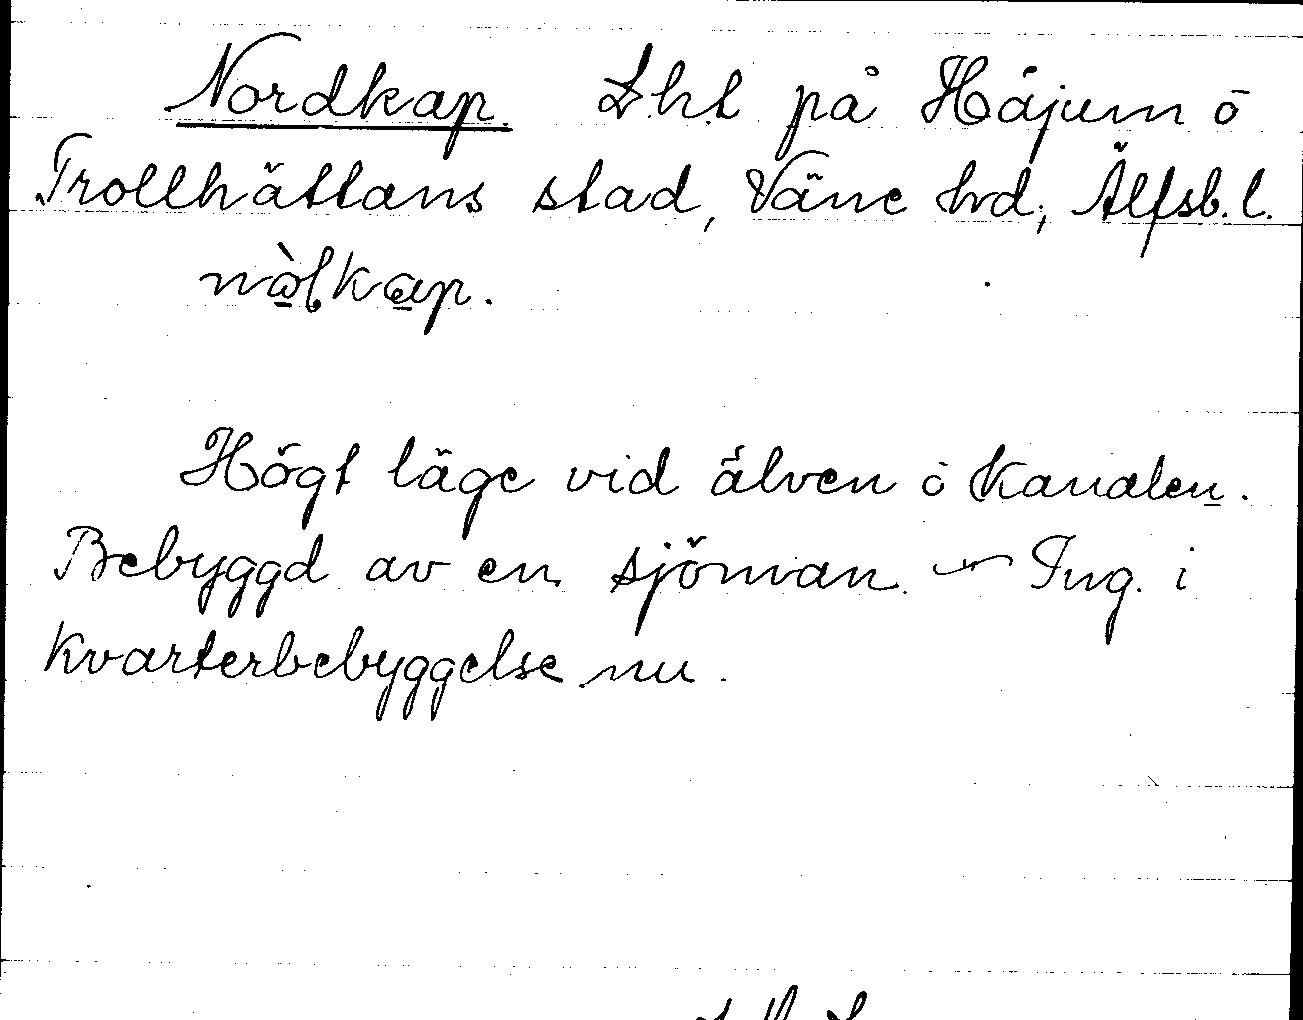 Nordkap. Lht på Håjum ö
Trollhättans stad, Väne hd, Älfsb. l.
Högt läge vid älven ö kanalen.
Bebyggd av en sjöman. — Ing. i
kvarterbebyggelse nu.